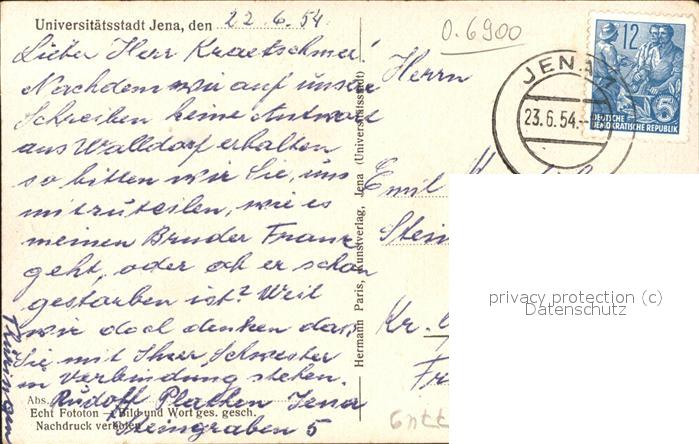 Universitätsstadt Jena, den 22.6.54.
Lieber Herr Kraetschmer!
Nachdem wir auf unser
Schreiben keine Antwort
aus Walldorf erhalten
so bitten wir Sie, uns
mitzuteilen, wie es
meinen Bruder Franz
geht, oder ob er schon
gestorben ist? Weil
wir doch denken das,
Sie mit Ihrer Schwester
in Verbindung stehen.
Abs. Rudolf Plathen Jena
Steingraben 5
Thüringen
Echt Fototon — Bild und Wort ges. gesch.
Nachdruck verboten
Hermann Paris, Kunstverlag, Jena (Universitätsstadt)
0.6900
Herrn
Emil
Stein
Kr.
Fr
JENA
23.6.54.-
12
5
DEUTSCHE
DEMOKRATISCHE REPUBLIK
privacy protection (c)
Datenschutz